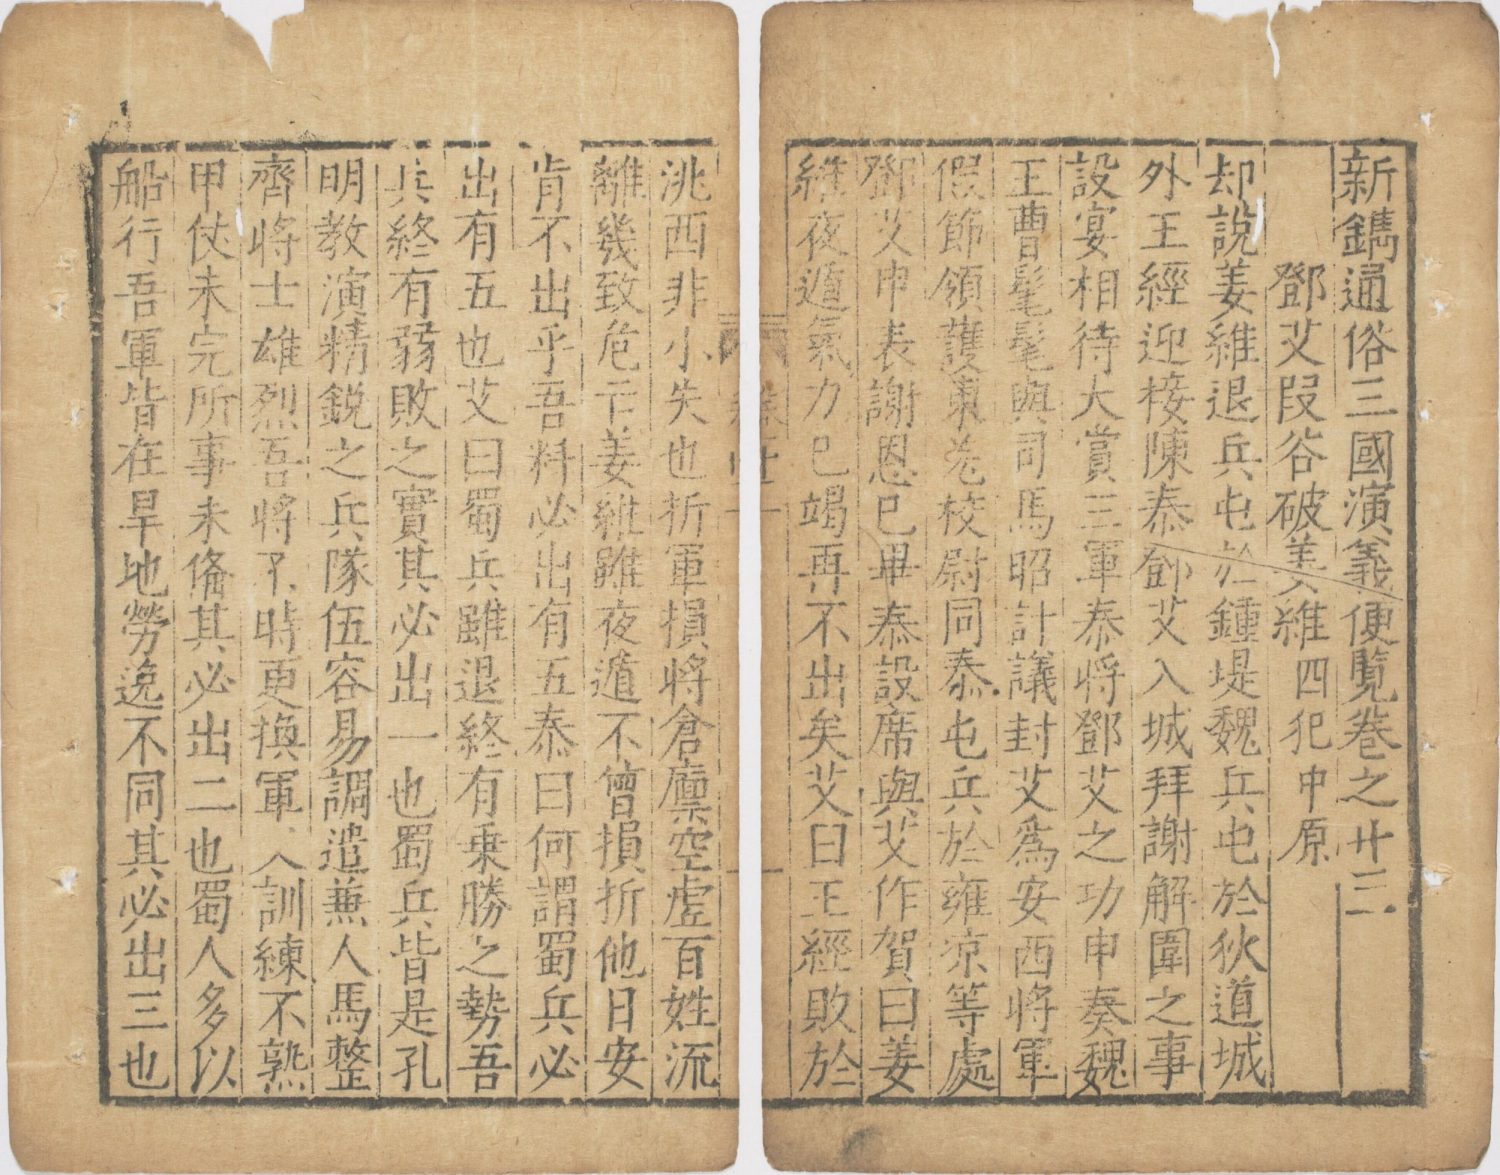 新鐫通俗三國演義便覽卷之廿三
鄧艾叚谷破姜維 四犯中原
却說姜維退兵屯於鍾堤魏兵屯於狄道城
外王經迎接陳泰鄧艾入城拜謝解圍之事
設宴相待大賞三軍泰將鄧艾之功申奏魏
王曹髦髦與司馬昭計議封艾爲安西將軍
假節領護東羌校尉同泰屯兵於雍凉等處
鄧艾申表謝恩巳畢泰設席與艾作賀曰姜
維夜遁氣力巳竭再不出矣艾曰王經敗於
洮西非小失也折軍損將倉廪空虛百姓流
離幾致危亡姜維雖夜遁不曾損折他日安
肯不出乎吾料必出有五泰曰何謂蜀兵必
出有五也艾曰蜀兵雖退終有乗勝之勢吾
兵終有弱敗之實其必出一也蜀兵皆是孔
明教演精鋭之兵隊伍容易調遣兼人馬整
齊將士雄烈吾將不時更換軍人訓練不熟
甲仗未完所事未俻其必出二也蜀人多以
船行吾軍皆在旱地勞逸不同其必出三也